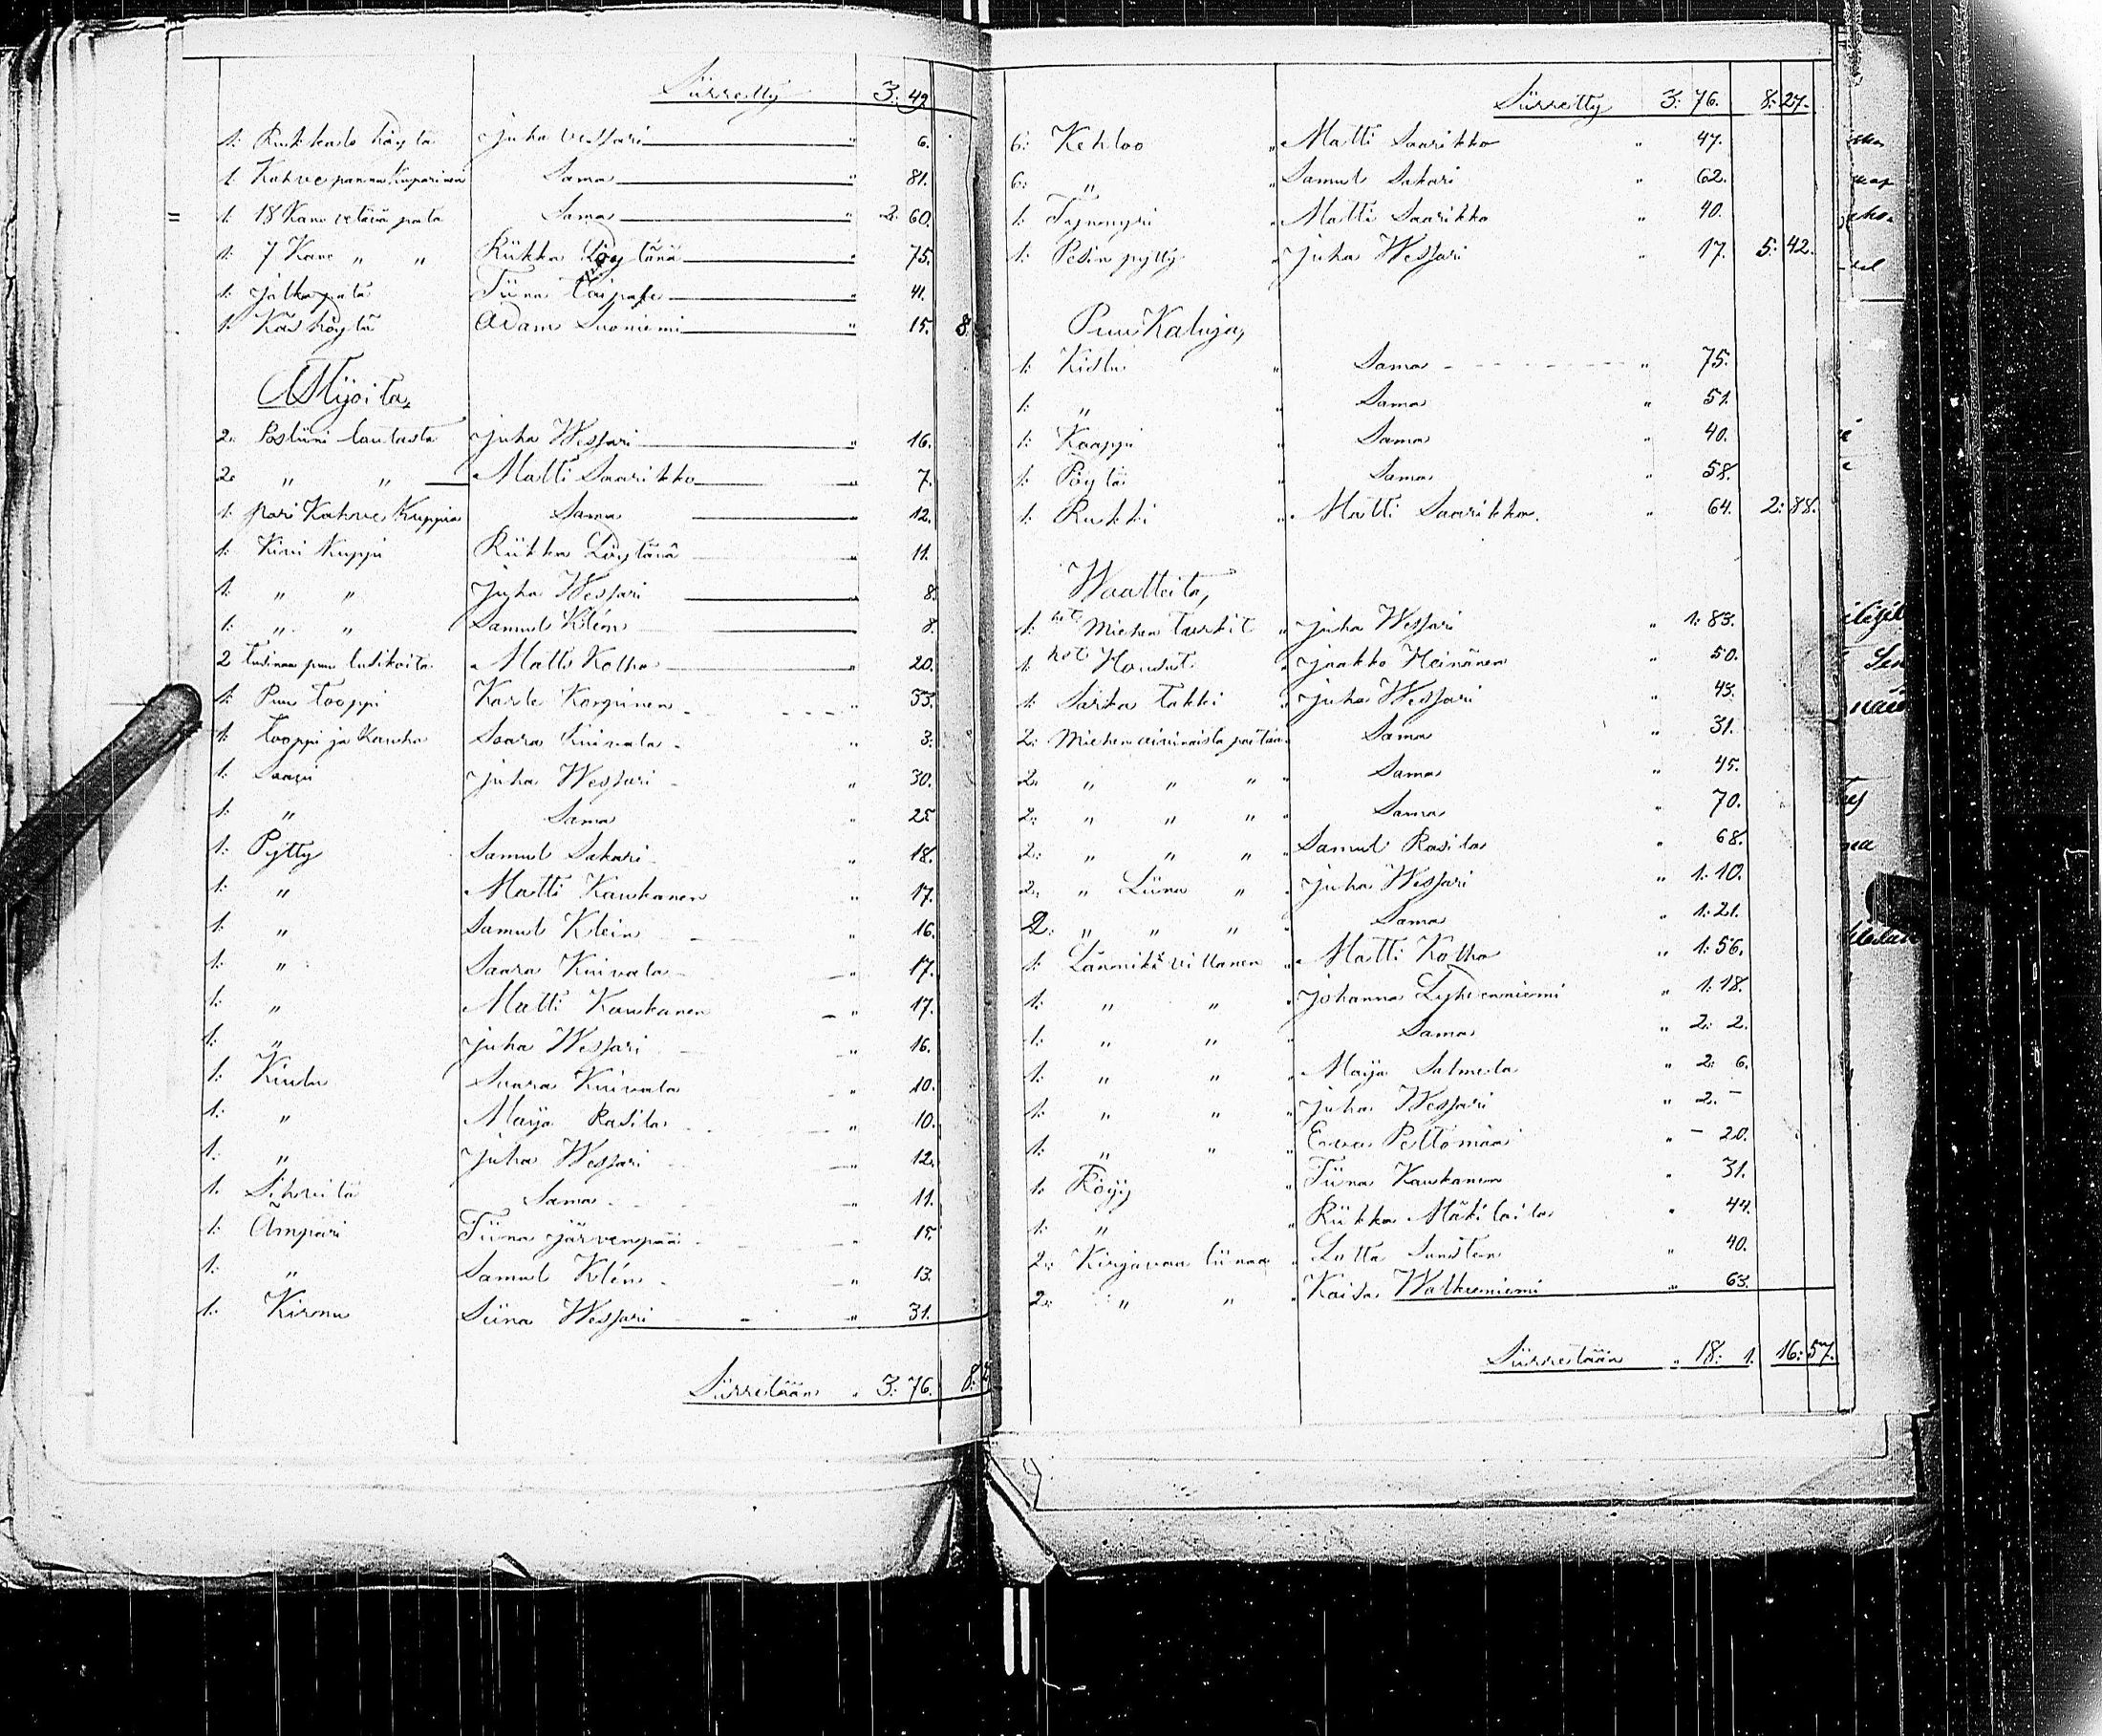 Siirretty 3: 49
1: Ruukkade höylä Juha Wessari " 6.
1: Kahve pannu kuparinen Sama " 81.
1: 18 Kanu vetävä pata Sama " 2: 60.
1: 7 Kanu " " Riikka Löytänä " 75.
1: jalka pata Tiina Taipale " 41.
1: Käs höylä Adam Suoniemi " 15. 8:
Astijoita,
2: Posliini lautasta Juha Wessari " 16.
2: " " Matti Saarikko " 7.
1: pari Kahve Kuppia Sama " 12.
1: Kivi Kuppi Riikka Löytänä " 11.
1: " " Juha Wessari " 8.
1: " " Samuel Klén " 8.
2 tusinaa puu lusikoita Matti Kotka " 20.
1: Puu Tooppi Karle Korpinen " 33.
1: Tooppi ja Kauha Saara Kuivala " 3.
1: Saavi Juha Wessari " 30.
1: " Sama " 25
1: Pytty Samuel Sakari " 18.
1: " Matti Kaukanen " 17.
1: " Samuel Klein " 16.
1: " Saara Kuivala " 17.
1: " Matti Kaukanen " 17.
1: " Juha Wessari " 16.
1: Kiulu Saara Kuivala " 10.
1: " Maija Rasila " 10.
1: " Juha Wessari " 12.
1: Sihvilä Sama " 11.
1: Ämpäri Tiina Järvenpää " 15.
1: " Samuel Klén " 13.
1: Kirnu Siina Wessari " 31.
Siirretään " 3: 76. 8:
Siirretty 3: 76. 8: 27.
6: Kehloo " Matti Saarikko " 47.
6: " " Samuel Sakari " 62.
1: Tynnyri " Matti Saarikko " 40.
1: Pesin pytty " Juha Wessari " 17. 5: 42.
Puu Kaluja,
1: Kistu " Sama " 75.
1: " " Sama " 51.
1: Kaappi " Sama " 40.
1: Pöytä " Sama " 58.
1: Rukki " Matti Saarikko. " 64. 2: 88.
Waatteita,
1: ket. Miehen turkit " Juha Wessari " 1: 83.
1: ket. Housut " Jaakko Heinänen " 50.
1: Sarka takki " Juha Wessari " 43.
2: Miehen aivinaista paitaa " Sama " 31.
2: " " " " Sama " 45.
2: " " " " Sama " 70.
2: " " " " Samuel Rasila " 68.
2: " Liina " " Juha Wessari " 1: 10.
2: " " " " Sama " 1: 21.
1: Lännikö villanen " Matti Kotka " 1: 56.
1: " " " Johanna Lyhdenniemi " 1: 18.
1: " " " Sama " 2: 2.
1: " " " Maija Salmela " 2: 6.
1: " " " Juha Wessari " 2: –
1: " " " Eeva Peltomaa " – 20.
1: Röijy " Tiina Kaukanen " 31.
1: " " Riikka Mäkilaila " 44.
2: Kirjavaa liinaa " Lotta Sunsten " 40.
2: " " " Kaisa Walkeeniemi " 63.
Siirretään " 18: 1. 16: 57.